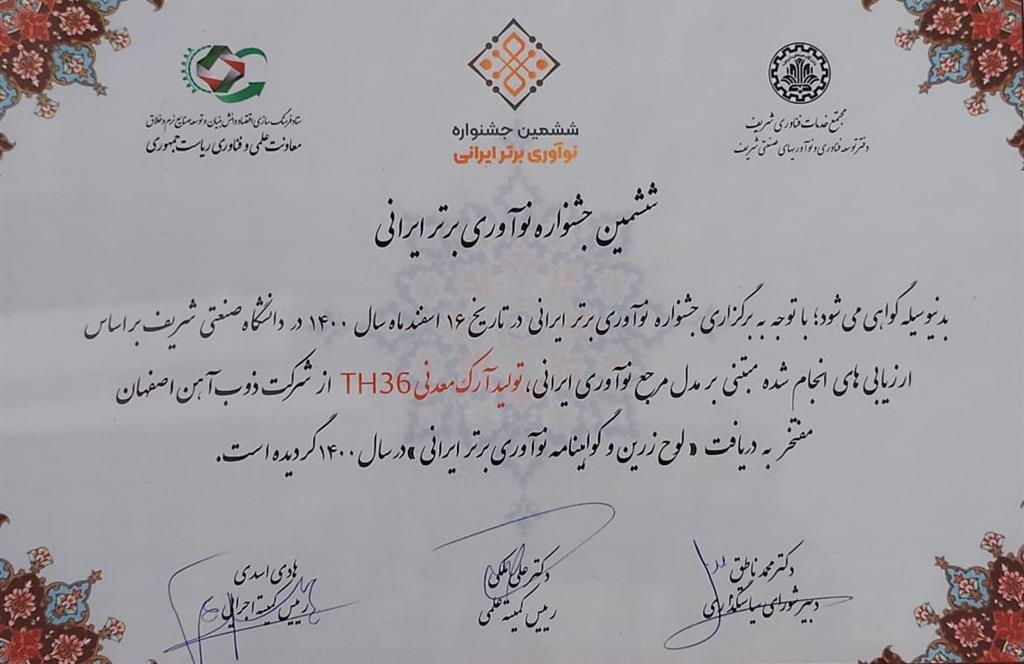 مجتمع خدمات فناوری شریف
دفتر توسعه فناوری و نوآوریهای صنعتی شریف
ششمین جشنواره
نوآوری برتر ایرانی
ستاد فرهنگ سازی اقتصاد دانش بنیان و توسعه صنایع نرم و خلاق
معاونت علمی و فناوری ریاست جمهوری
ششمین جشنواره نوآوری برتر ایرانی
بدنیوسیله گواهی می شود؛ با توجه به برگزاری جشنواره نوآوری برتر ایرانی در تاریخ ۱۶ اسفند ماه سال ۱۴۰۰ در دانشگاه صنعتی شریف بر اساس
ارزیابی های انجام شده مبتنی بر مدل مرجع نوآوری ایرانی، تولید آرک معدنی TH36 از شرکت ذوب آهن اصفهان
مفتخر به دریافت «لوح زرین و گواهینامه نوآوری برتر ایرانی» در سال ۱۴۰۰ گردیده است.
دکتر محمد ناطق
دبیر شورای سیاستگذاری
دکتر علی ملکی
رییس کمیته علمی
هادی اسدی
رییس کمیته اجرایی